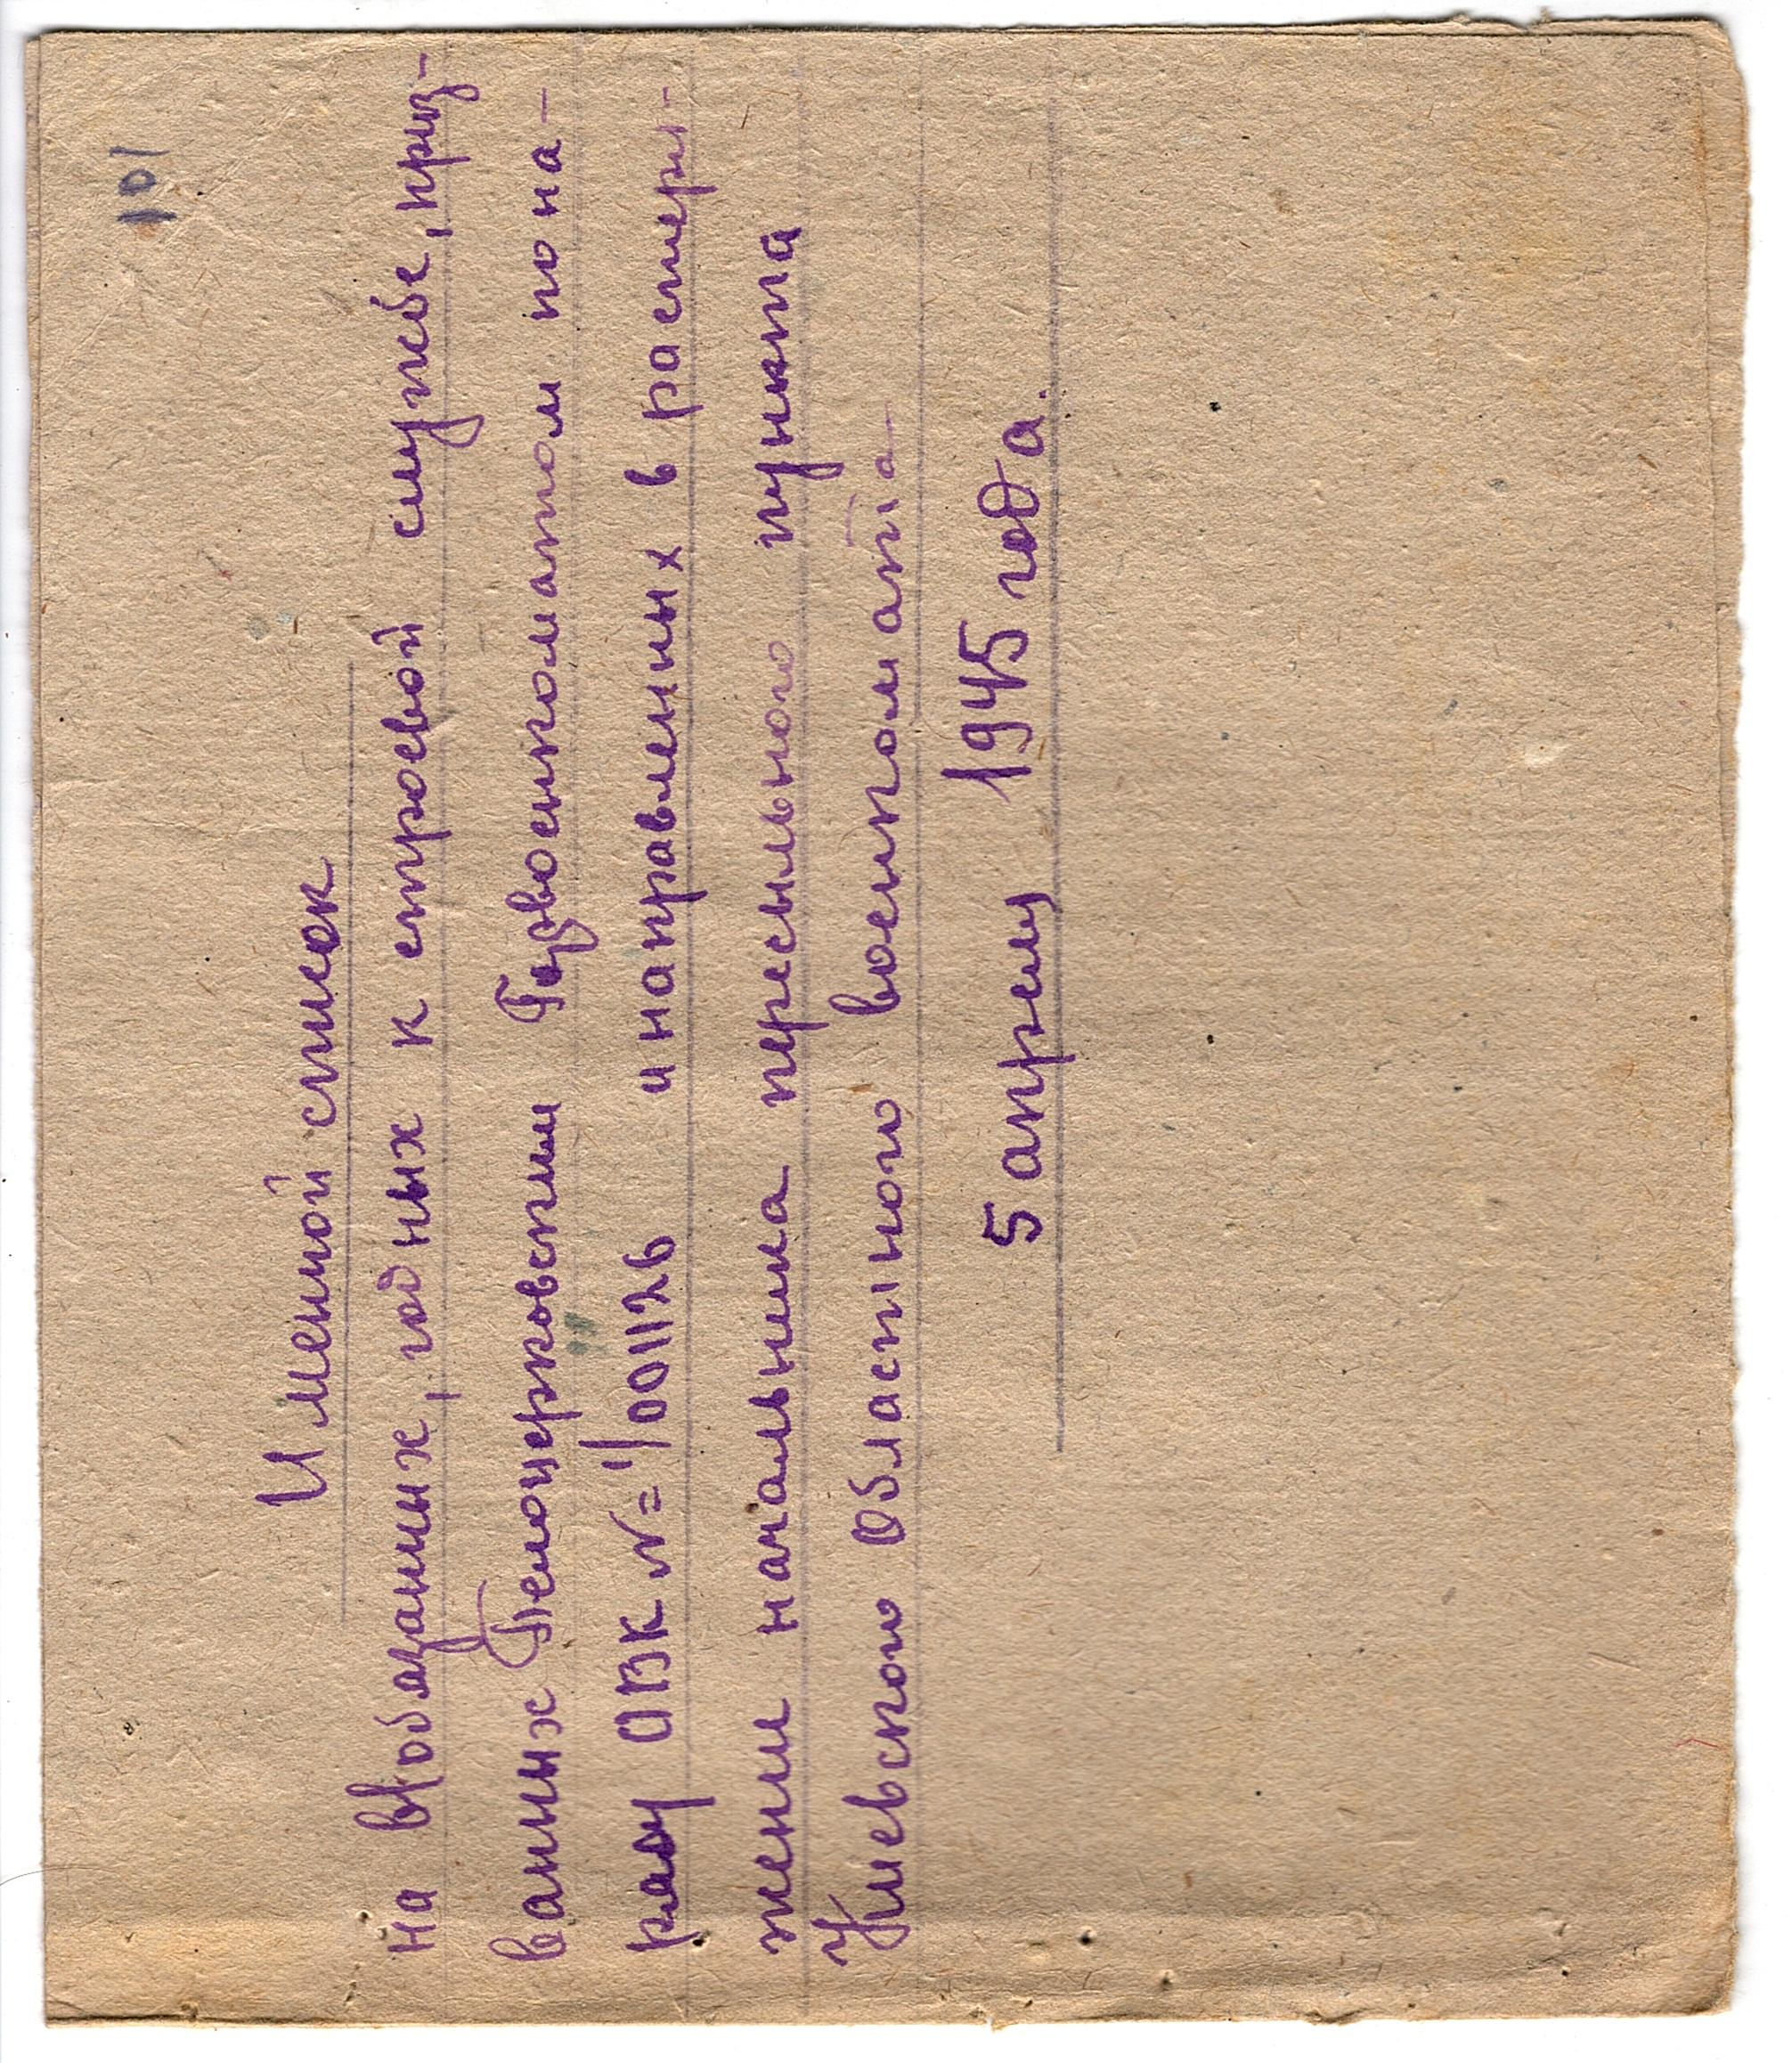 101
Именной список
на в/обязанных, годных к строевой службе, приз-
ванных Белоцерковским Горвоенкоматом по на-
ряду ОВК №=1/001126 и направленных в распоря-
жении начальника пересыльного пункта
Киевского Областного военкомата
5 апреля 1945 года.